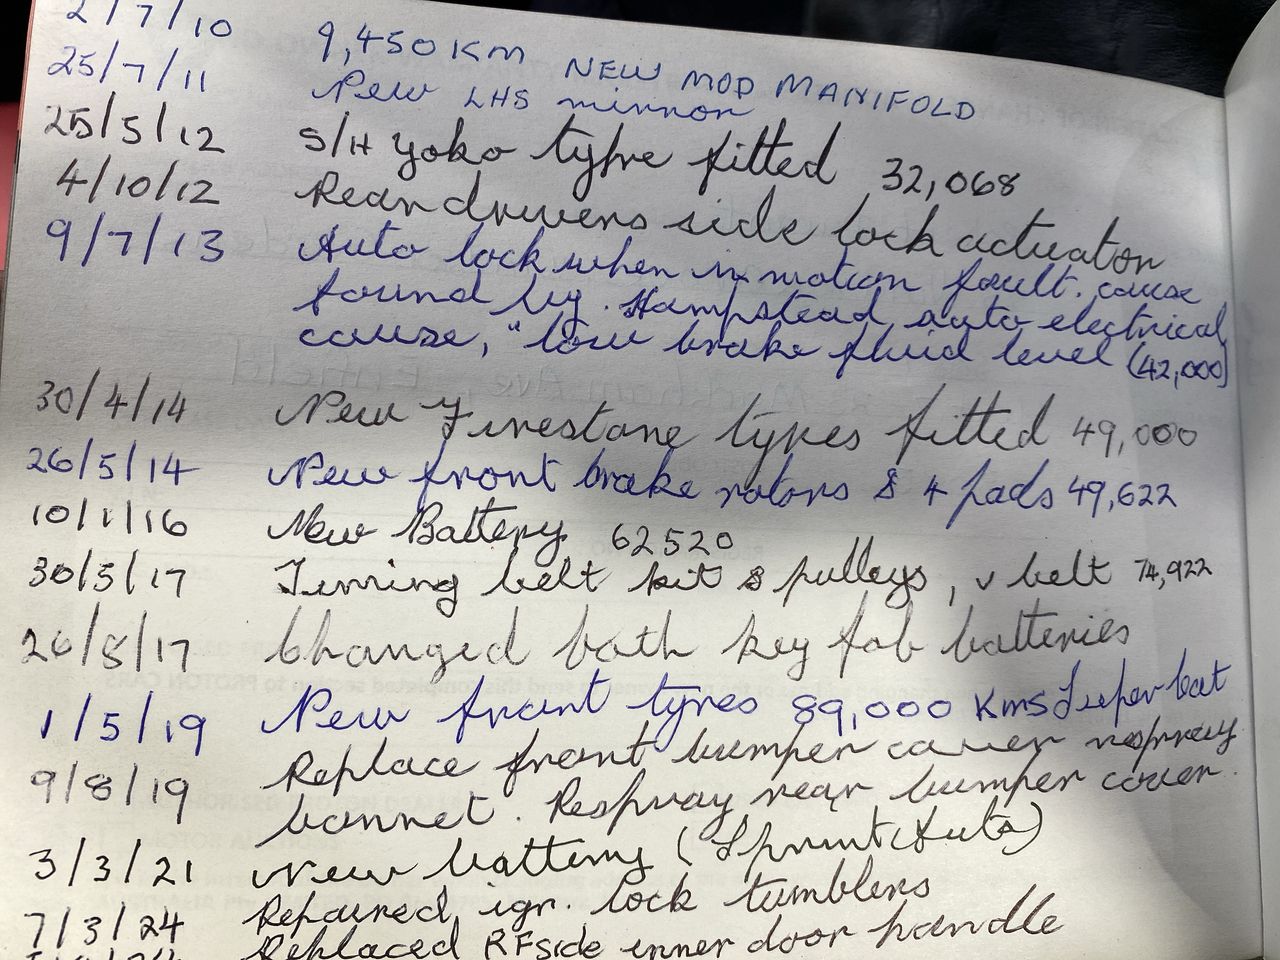 2/7/10 9,450KM NEW MOD MANIFOLD
25/7/11 New LHS mirror
25/5/12 S/H Yoko tyre fitted 32,068
4/10/12 Rear drivers side lock actuator
9/7/13 Auto lock when in motion fault. cause
found by. Hampstead auto electrical
cause, "low brake fluid level (42,000)
30/4/14 New Firestone tyres fitted 49,000
26/5/14 New front brake rotors & 4 pads 49,622
10/1/16 New Battery 62520
30/5/17 Timing belt kit & pulleys, v belt 74,922
26/8/17 Changed both key fob batteries
1/5/19 New front tyres 89,000 Kms Supercat
9/8/19 Replace front bumper cover respray
bonnet. Respray rear bumper cover.
3/3/21 New battery (Sprint Auto)
7/3/24 Repaired ign. lock tumblers
Replaced RFside inner door handle